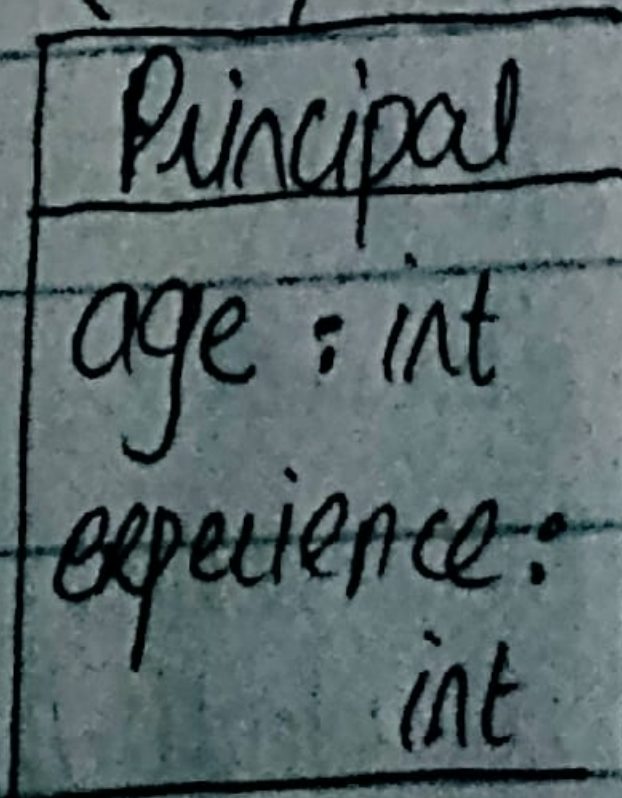 Principal
age : int
experience :
int